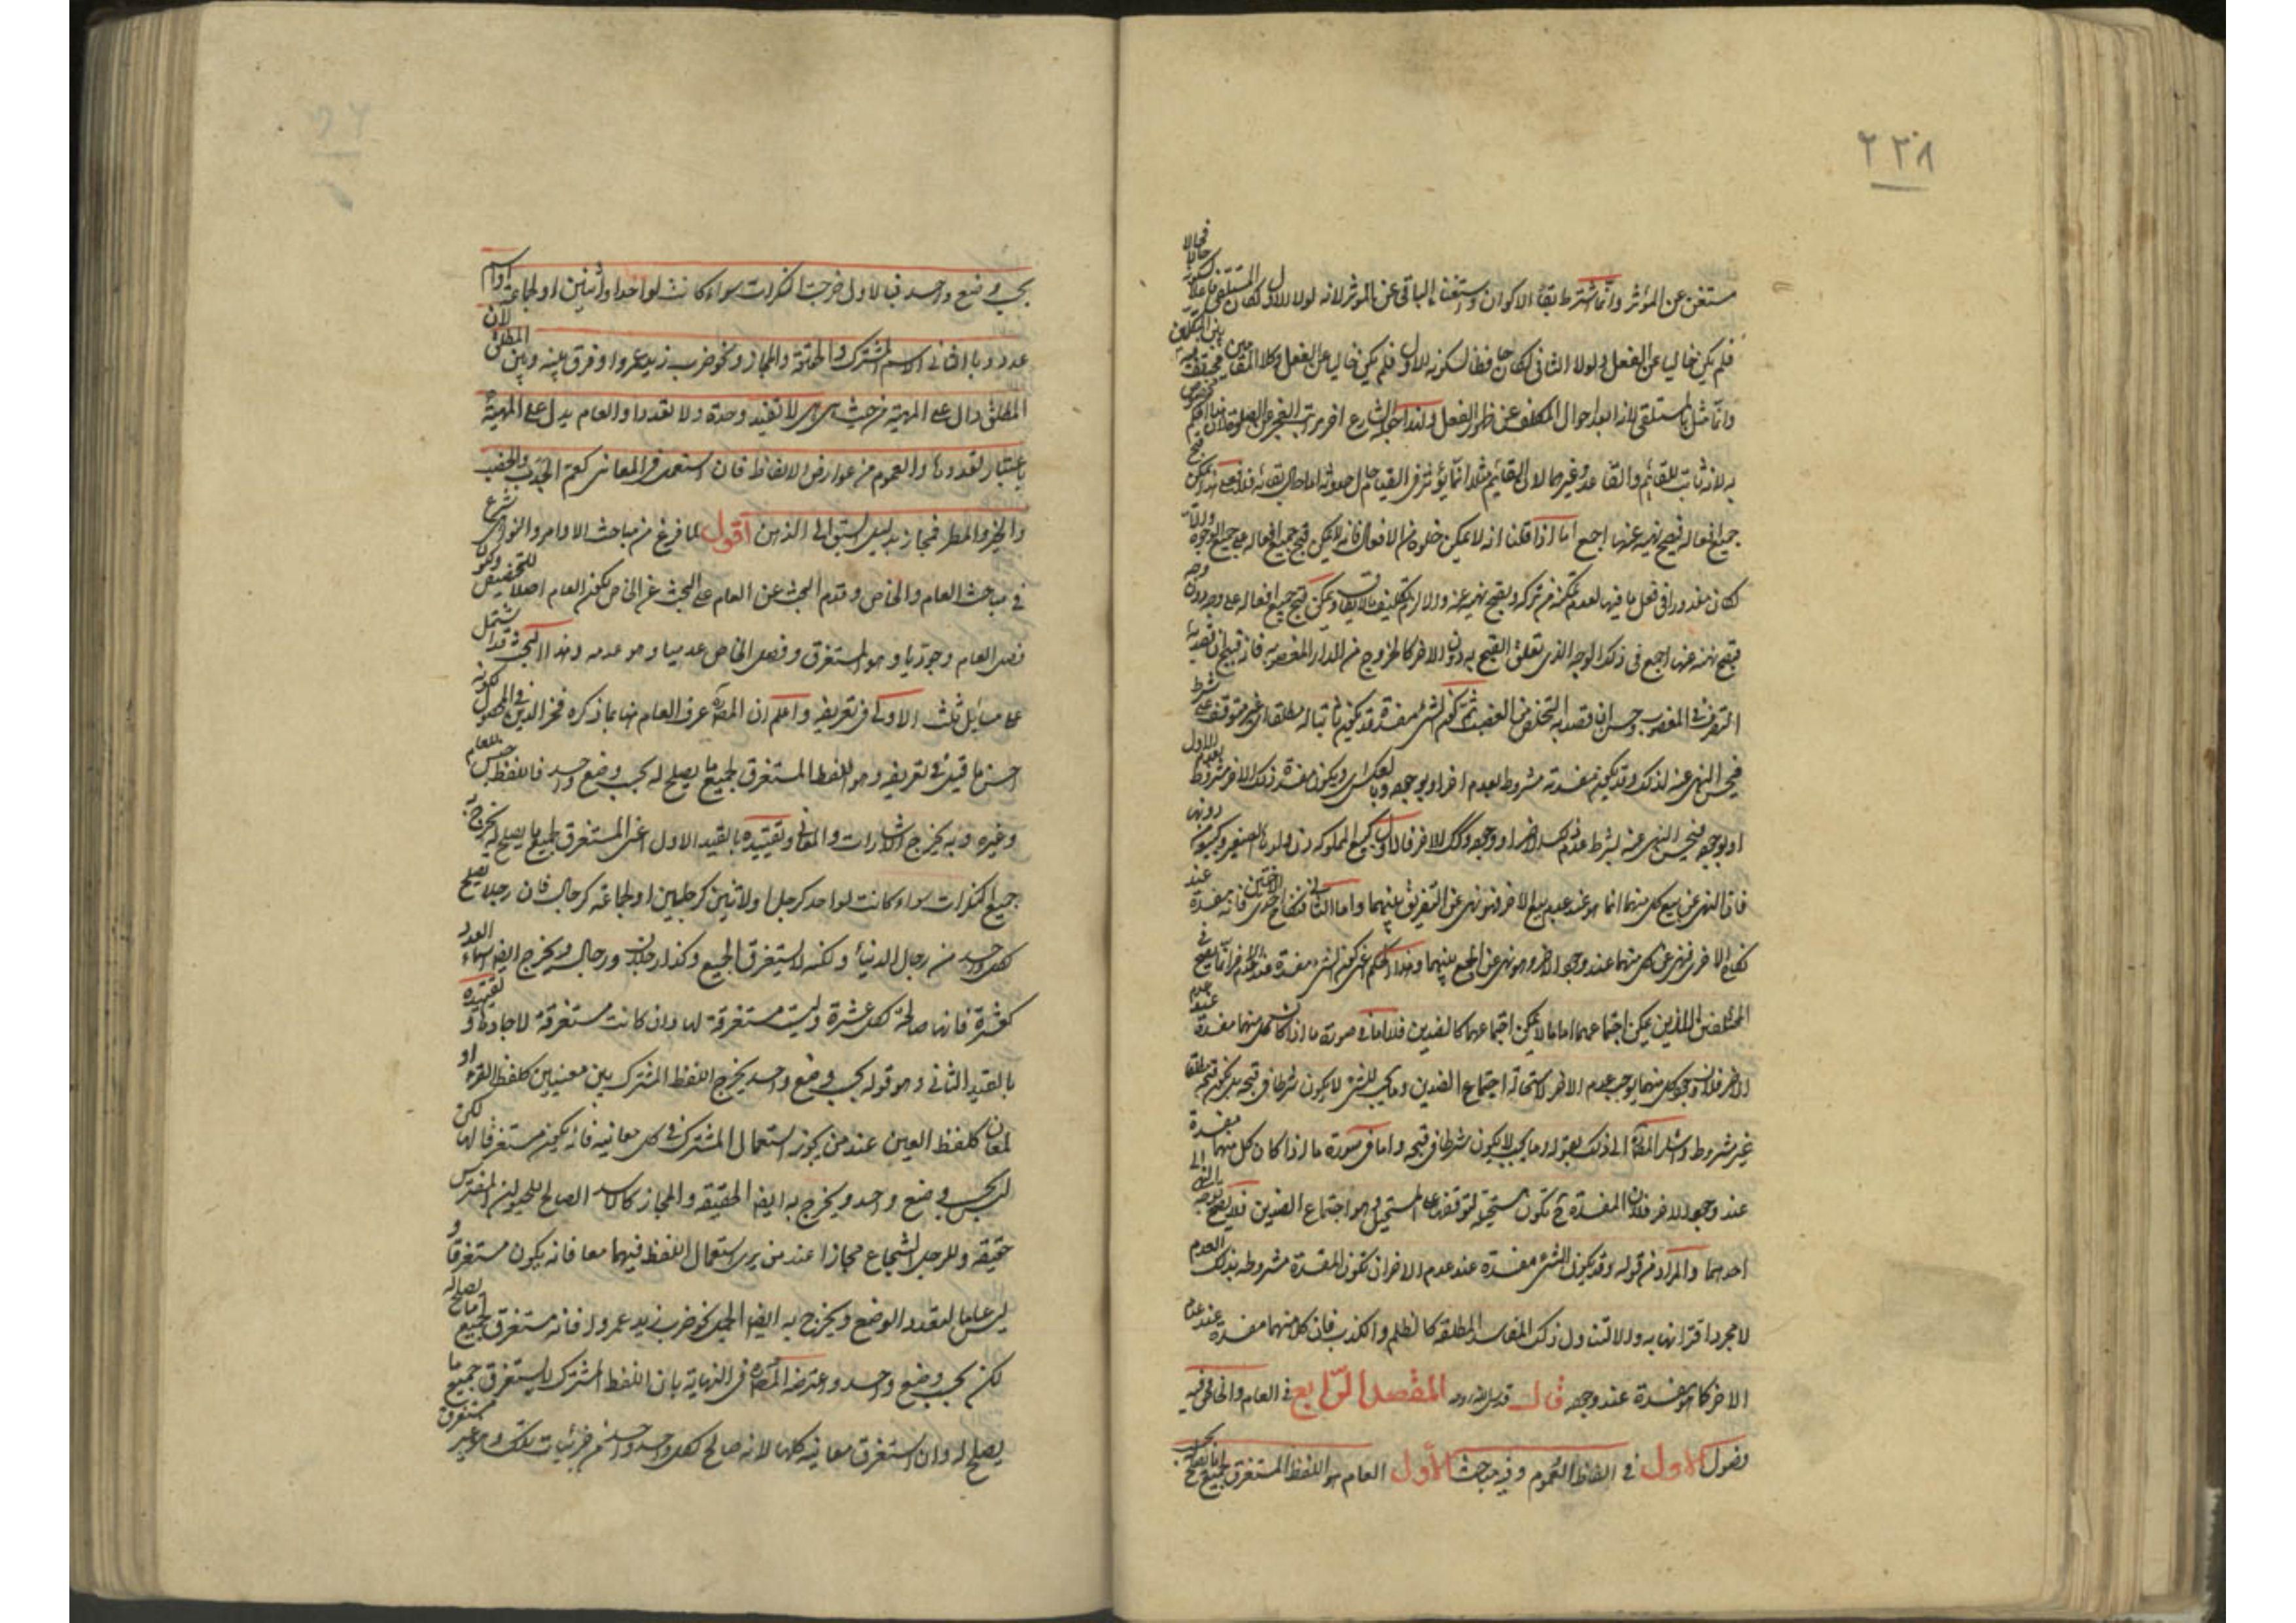 ٢٢٨
مستغن عن المؤثر وانما شترط بقاء الاكوان واستغناء الباقى عن المؤثر لانه لولا الاول لكان المستلقى فاعلا لسكونه حالا فحالا
فلم يكن خاليا عن الفعل ولولا الثانى لكان حافظا لسكونه الاول فلم يكن خاليا عن الفعل وكلا المقامين بين المتكلمين
وانما مثل بالمستلقى لانه ابعد احوال المكلف عن الفعل
به لانه ثابت للقائم والقاعد وغيرهما لان القائم مثلا انما يؤثر فى القيام حال حدوثه اما حال بقائه فلا فعلى هذا يمكن
جميع افعاله فيصح نهيه عنها اجمع اما اذا قلنا انه لا يمكن خلوه من الافعال فانه لا يمكن قبح جميع افعاله على جميع الوجوه والا
لكان معذورا فى فعل ما فيها لعدم تمكنه من تركه ويقبح نهيه عنه والا لزم تكليف ما لا يطاق ويمكن قبح جميع افعاله على وجه دون وجه
فيقبح نهيه عنها اجمع فى ذلك الوجه الذى تعلق القبح به دون الاخر كالخروج من الدار المغصوبة فانه قبيح ان قصد به
التصرف فى المغصوب وحسن ان قصد به التخلص من الغصب ثم كون الشىء مفسدة قد يكون ثابتا له مطلقا اى غير متوقف على شرط
فيحسن النهى عنه لذلك وقد يكون مفسدته مشروطا بعدم اخر او بوجوده وبالعكس اى ويكون مفسدة ذلك الاخر مشروطا بعدم الاول
او بوجوده فيحسن النهى عنه بشرط عدم ذلك الاخر او وجوده وكذلك الاخر فالاول كبيع المملوكة دون ولدها الصغير وكبيعه دونها
فان النهى عن بيع كل منهما انما هو عند عدم بيع الاخر فهو نهى عن التفريق بينهما واما الثانى فكنكاح احدى الاختين فانه مفسدة عند
نكاح الاخرى فنهى عن كل منهما عند وجود الاخر وهو نهى عن الجمع بينهما وهذا الحكم اعنى كون الشىء مفسدة عند عدم اخر انما يصح فى
المختلفين اللذين يمكن اجتماعهما اما ما لا يمكن اجتماعهما كالضدين فلا اما فى صورة ما اذا كان كل منهما مفسدة عند عدم
الاخر فلان وجود كل منهما يوجب عدم الاخر لاستحالة اجتماع الضدين وما يجب للشىء لا يكون شرطا فى قبحه بل يكون قبحه مطلقا
غير مشروط واشار المصنف الى ذلك بقوله وما يجب لا يكون شرطا فى قبحه واما فى صورة ما اذا كان كل منهما مفسدة
عند وجود الاخر فلان المفسدة ح تكون مستحيلة لتوقفها على المستحيل وهو اجتماع الضدين فلا يصح النهى
احدهما والمراد من قوله وقد يكون الشىء مفسدة عند عدم الاخر ان تكون المفسدة مشروطة بذلك العدم
لا مجرد اقترانها به والا لتناول ذلك المفاسد المطلقة كالظلم والكذب فان كلا منهما مفسدة عند عدم
الاخر كما هو مفسدة عند وجوده قال قدس الله روحه المقصد الرابع فى العام والخاص وفيه
فصول الاول فى الفاظ العموم وفيه مباحث الاول العام هو اللفظ المستغرق لجميع ما يصلح له
بحسب وضع واحد فبالاول خرجت النكرات سواء كانت لواحد او اثنين او لجماعة او اسم
عدد وبالثانى الاسم المشترك والحقيقة والمجاز ونحو ضرب زيد عمروا وفرق بينه وبين المطلق لان
المطلق دال على المهية من حيث هى هى لا تقيد وحدة ولا تعددا والعام يدل على المهية
باعتبار تعددها والعموم من عوارض الالفاظ فان استعمل فى المعانى كعم الجدب والخصب
والخير والمطر فمجاز بدليل السبق الى الذهن اقول لما فرغ من مباحث الاوامر والنواهى شرع
فى مباحث العام والخاص وقدم البحث عن العام على البحث عن الخاص لكون العام اصلا للتخصيص ولكون
فصل العام وجوديا وهو المستغرق وفصل الخاص عدميا وهو عدمه وهذا البحث قد اشتمل
على مسائل ثلث الاولى فى تعريفه واعلم ان المصنف عرف العام هنا بما ذكره فخر الدين فى المحصول لكونه
احسن ما قيل فى تعريفه وهو اللفظ المستغرق لجميع ما يصلح له بحسب وضع واحد فاللفظ جنس للعام
وغيره وبه يخرج الاشارات والمعانى وتقييده بالقيد الاول اعنى المستغرق لجميع ما يصلح له يخرج به
جميع النكرات سواء كانت لواحد كرجل او لاثنين كرجلين او لجماعة كرجال فان رجلا يصلح
لكل واحد من رجال الدنيا ولكنه لا يستغرق الجميع وكذا رجلان ورجال ويخرج ايضا اسماء العدد
كعشرة فانها صالحة لكل عشرة وليست مستغرقة لها وان كانت مستغرقة لاحادها وتقييده
بالقيد الثانى وهو قوله بحسب وضع واحد يخرج اللفظ المشترك بين معنيين كلفظ القرء او
لمعان كلفظ العين عند من يجوز استعمال المشترك فى كل معانيه فانه يكون مستغرقا لها لكن
ليس بحسب وضع واحد ويخرج به ايضا الحقيقة والمجاز كالاسد الصالح للحيوان المفترس
حقيقة وللرجل الشجاع مجازا عند من يرى استعمال اللفظ فيهما معا فانه يكون مستغرقا و
ليس عاما لتعدد الوضع ويخرج به ايضا الجمل نحو ضرب زيد عمروا فانه مستغرق لجميع ما يصلح له
لكن بحسب وضع واحد واعترضه المصنف فى النهاية بان اللفظ المشترك لا يستغرق جميع ما
يصلح له وان استغرق معانيه كلها لانه صالح لكل واحد واحد من جزئيات تلك وهو غير مستغرق